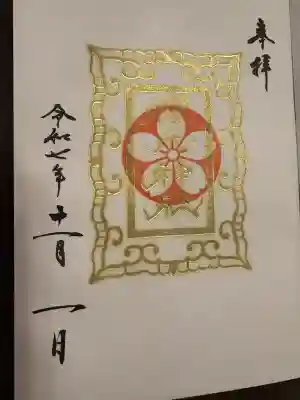 奉拝
令和七年十一月一日